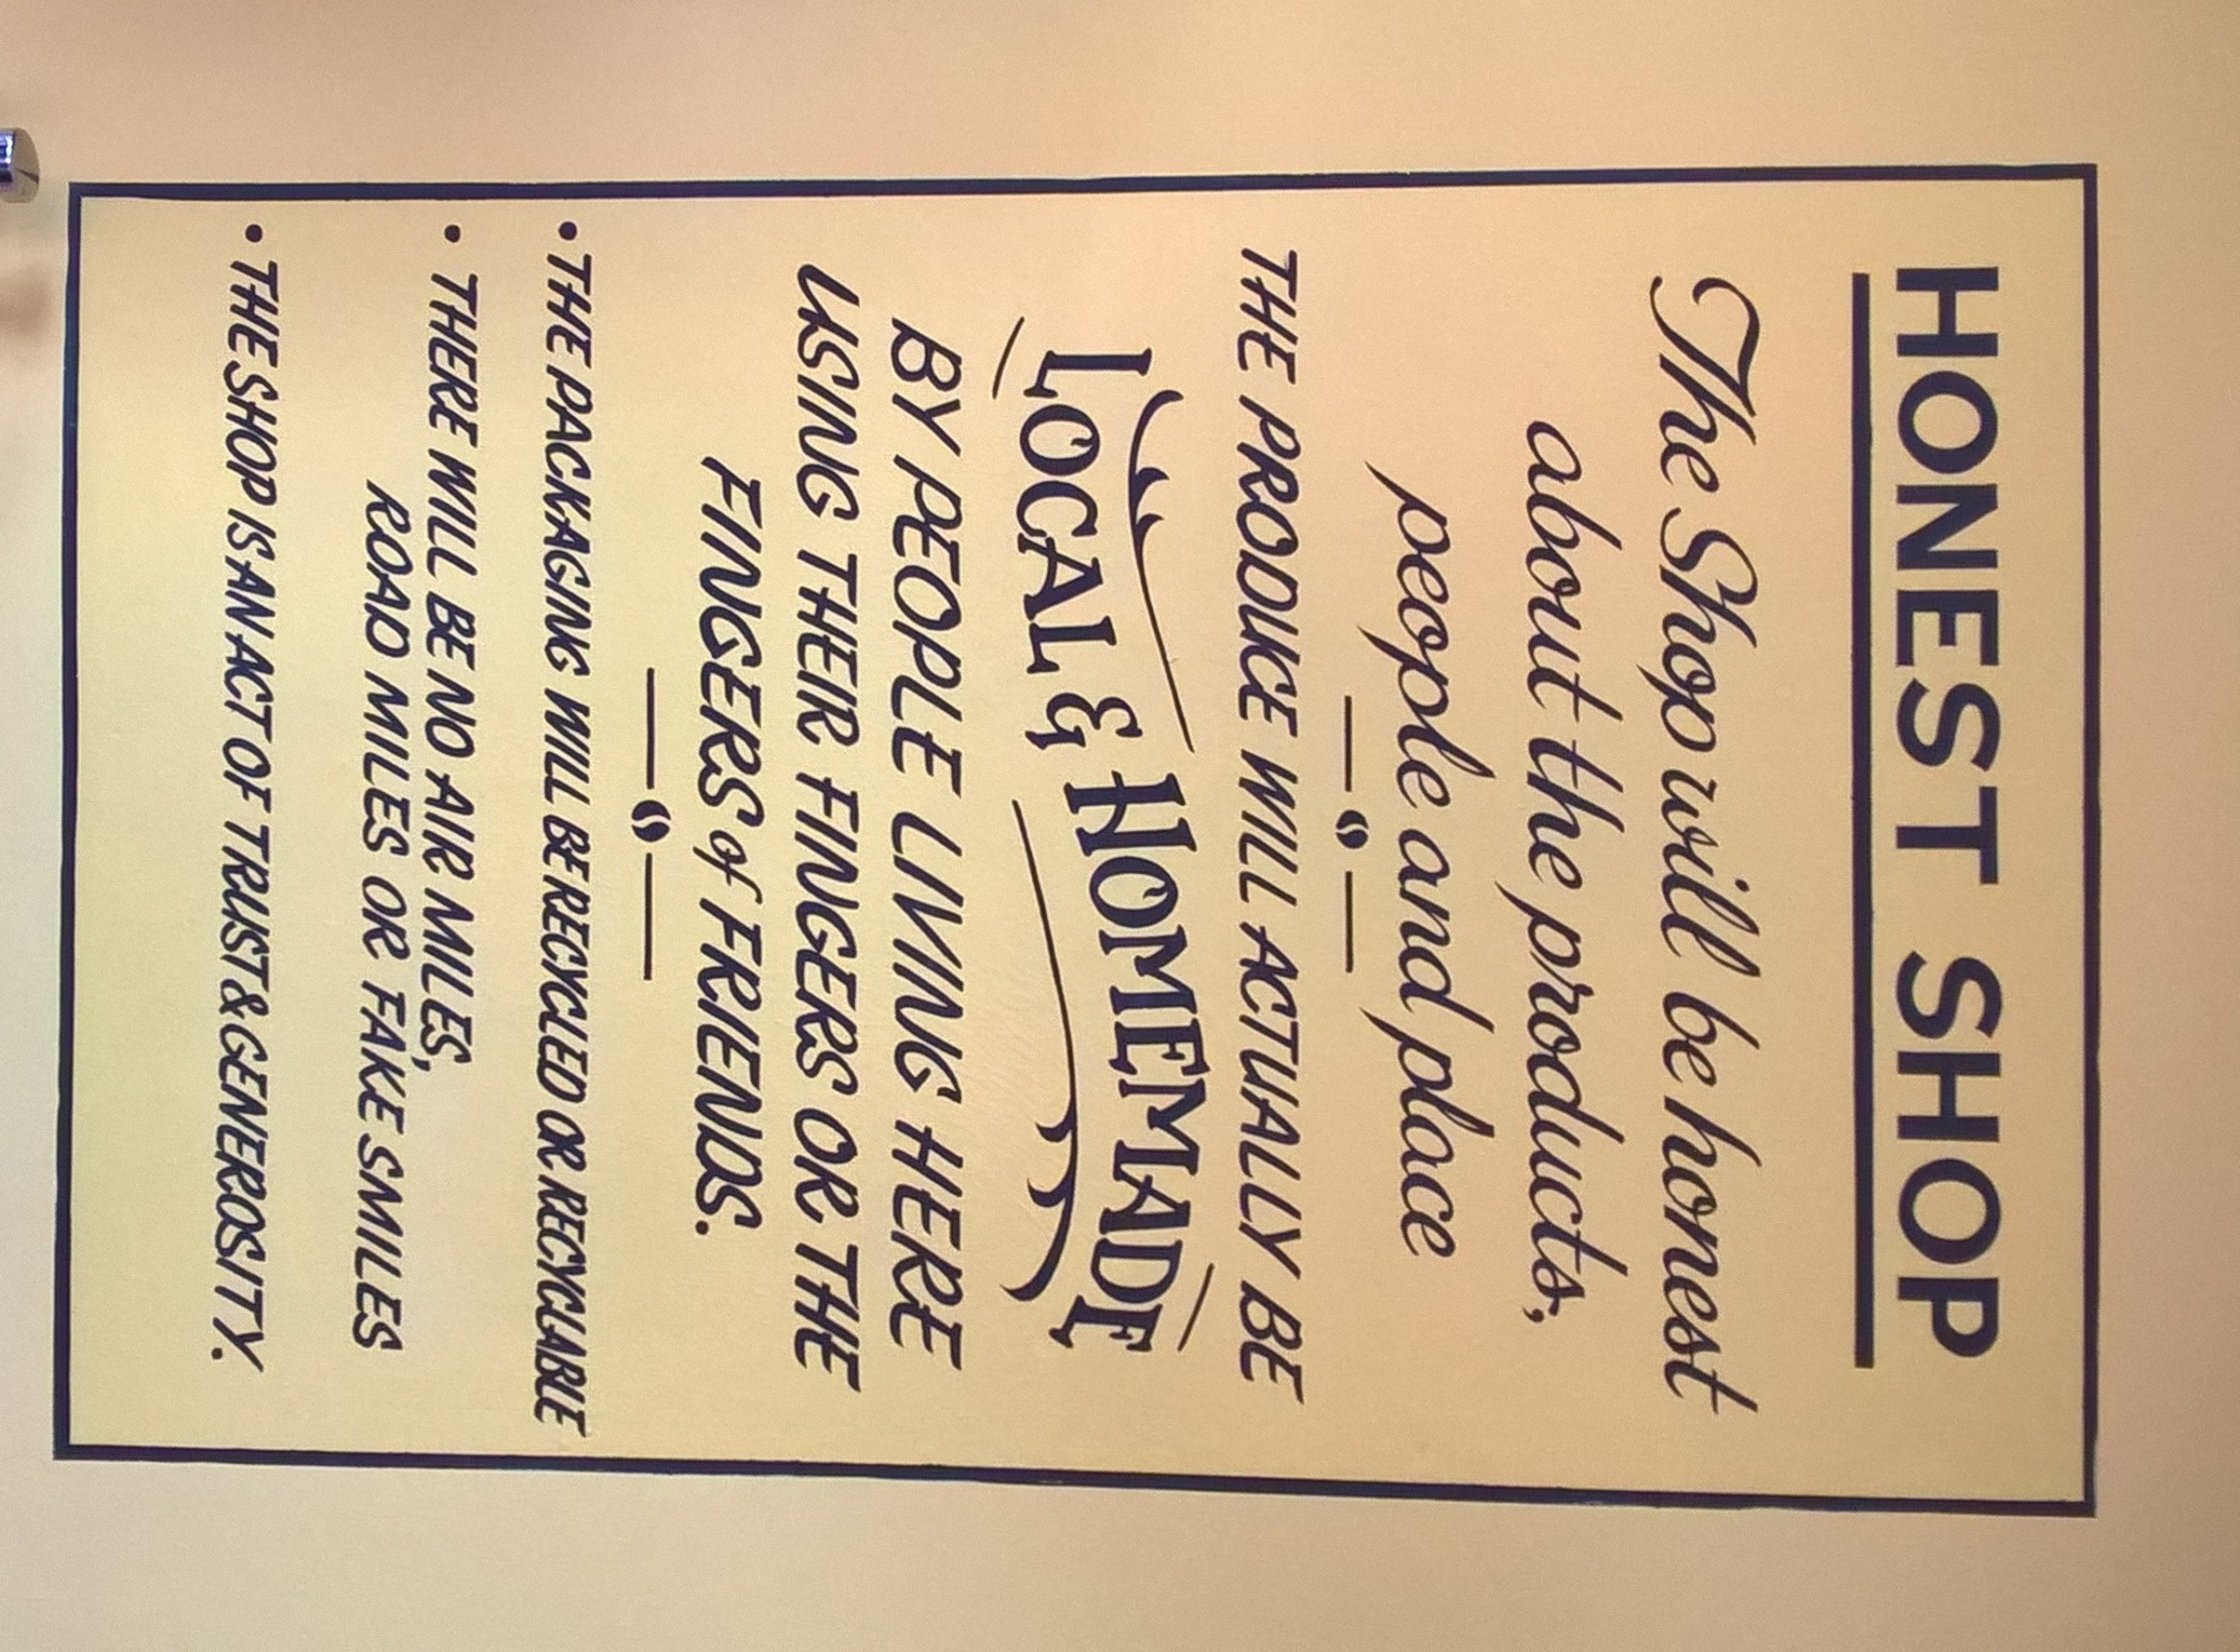 HONEST SHOP
The Shop will be honest
about the products,
people and place
THE PRODUCE WILL ACTUALLY BE
LOCAL & HOMEMADE
BY PEOPLE LIVING HERE
USING THEIR FINGERS OR THE
FINGERS of FRIENDS.
• THE PACKAGING WILL BE RECYCLED OR RECYCLABLE
• THERE WILL BE NO AIR MILES,
ROAD MILES OR FAKE SMILES
• THE SHOP IS AN ACT OF TRUST & GENEROSITY.